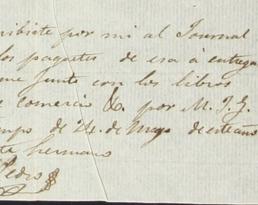 por mi al Journal
los paquetes de esa á entrega
junto con los libros
comercio &. por M. J. G.
de 24 de Mayo de este año
hermano
Pedro